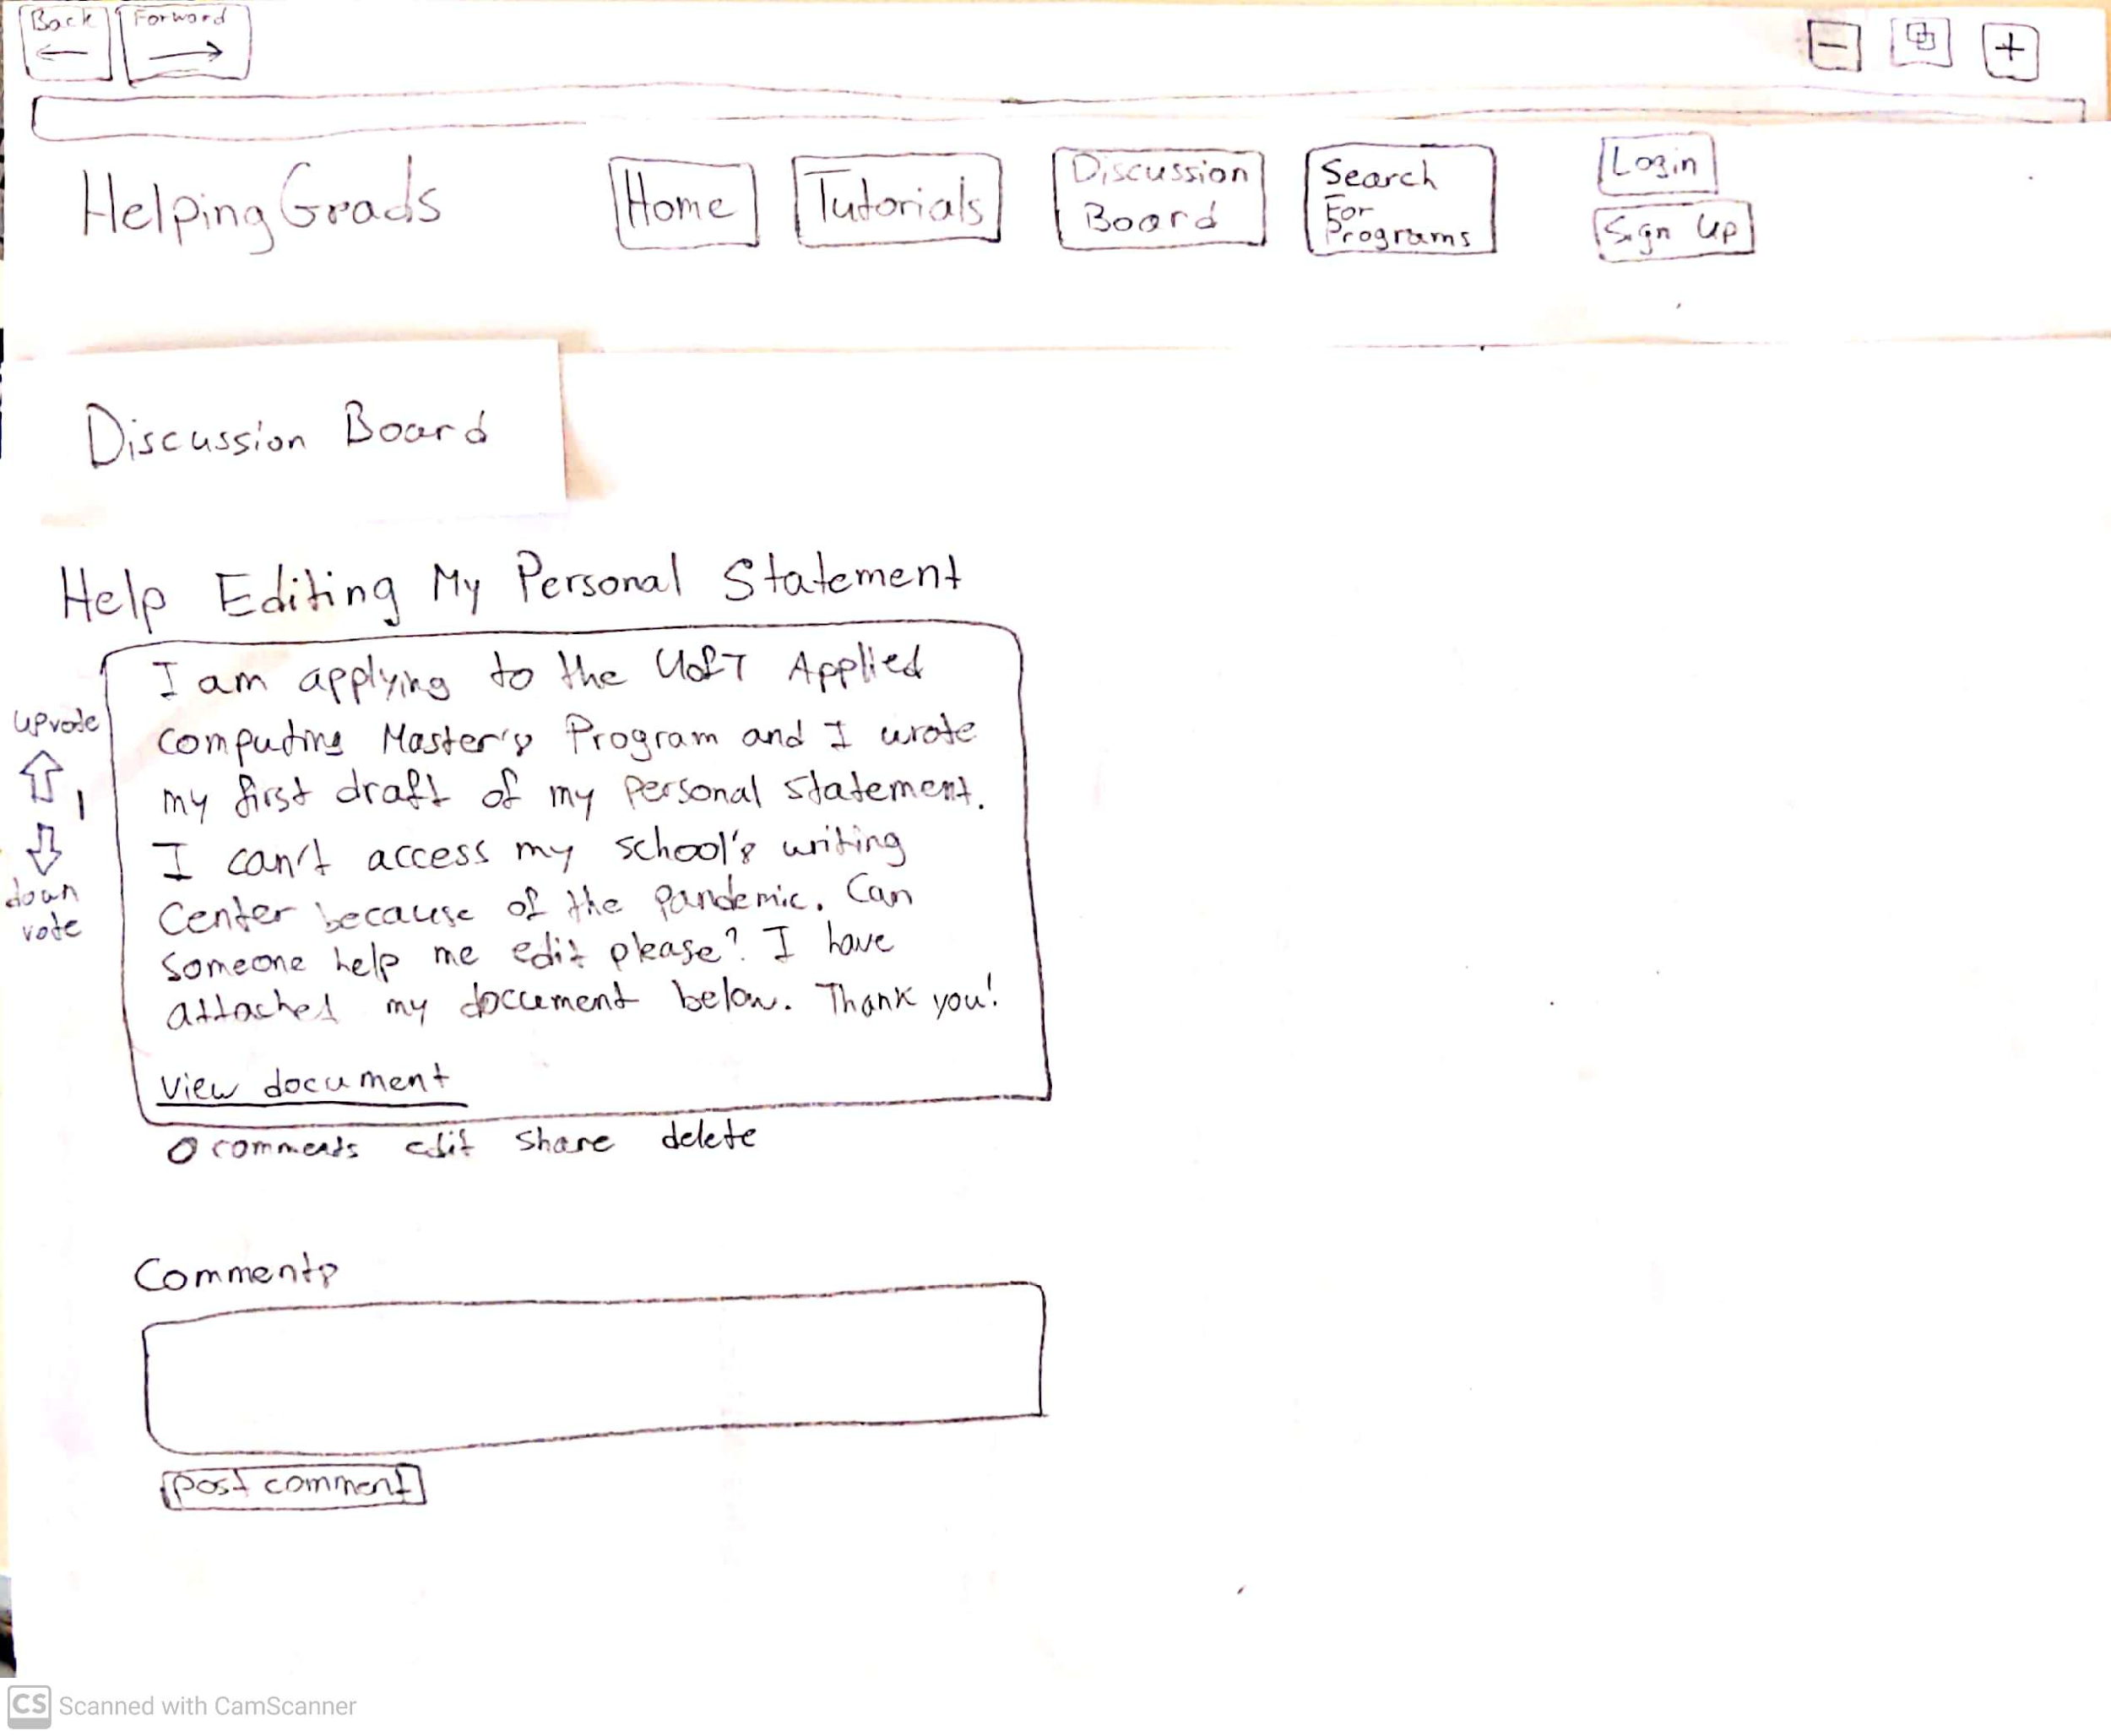 Back
Forward
HelpingGrads
Home
Tutorials
Discussion
Board
Search
For
Programs
Login
Sign Up
Discussion Board
Help Editing My Personal Statement
I am applying to the UofT Applied
computing Master's Program and I wrote
my first draft of my personal statement.
I can't access my school's writing
Center because of the pandemic. Can
someone help me edit please? I have
attached my document below. Thank you!
view document
upvote
1
down
vote
0 comments edit share delete
Comments
post comment
CS Scanned with CamScanner